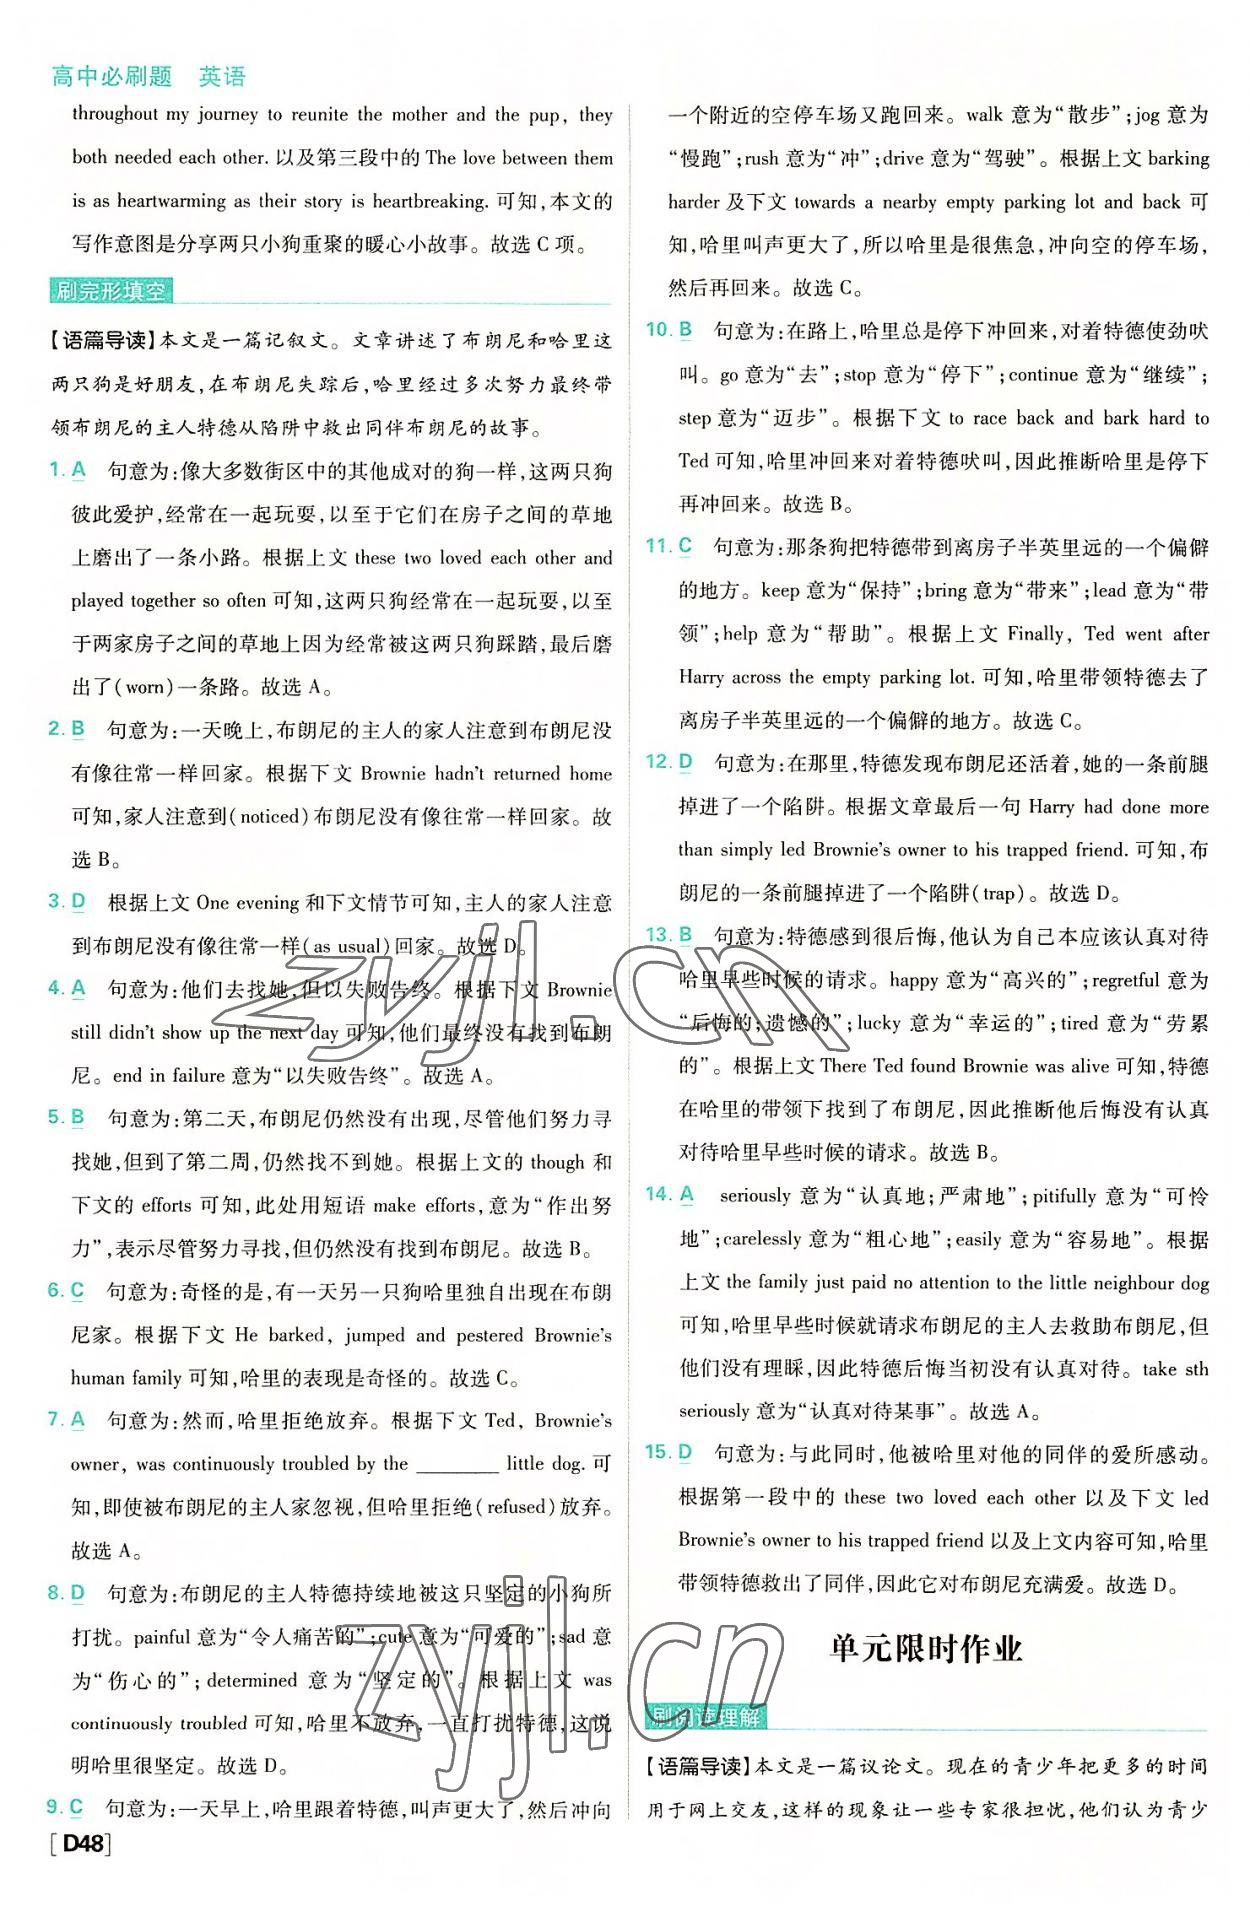 高中必刷题 英语
throughout my journey to reunite the mother and the pup, they
both needed each other. 以及第三段中的 The love between them
is as heartwarming as their story is heartbreaking. 可知,本文的
写作意图是分享两只小狗重聚的暖心小故事。故选 C 项。
刷完形填空
【语篇导读】本文是一篇记叙文。文章讲述了布朗尼和哈里这
两只狗是好朋友,在布朗尼失踪后,哈里经过多次努力最终带
领布朗尼的主人特德从陷阱中救出同伴布朗尼的故事。
1. A 句意为:像大多数街区中的其他成对的狗一样,这两只狗
彼此爱护,经常在一起玩耍,以至于它们在房子之间的草地
上磨出了一条小路。根据上文 these two loved each other and
played together so often 可知,这两只狗经常在一起玩耍,以至
于两家房子之间的草地上因为经常被这两只狗踩踏,最后磨
出了(worn)一条路。故选 A。
2. B 句意为:一天晚上,布朗尼的主人的家人注意到布朗尼没
有像往常一样回家。根据下文 Brownie hadn't returned home
可知,家人注意到(noticed)布朗尼没有像往常一样回家。故
选 B。
3. D 根据上文 One evening 和下文情节可知,主人的家人注意
到布朗尼没有像往常一样(as usual)回家。故选 D。
4. A 句意为:他们去找她,但以失败告终。根据下文 Brownie
still didn't show up the next day 可知,他们最终没有找到布朗
尼。end in failure 意为“以失败告终”。故选 A。
5. B 句意为:第二天,布朗尼仍然没有出现,尽管他们努力寻
找她,但到了第二周,仍然找不到她。根据上文的 though 和
下文的 efforts 可知,此处用短语 make efforts,意为“作出努
力”,表示尽管努力寻找,但仍然没有找到布朗尼。故选 B。
6. C 句意为:奇怪的是,有一天另一只狗哈里独自出现在布朗
尼家。根据下文 He barked, jumped and pestered Brownie's
human family 可知,哈里的表现是奇怪的。故选 C。
7. A 句意为:然而,哈里拒绝放弃。根据下文 Ted, Brownie's
owner, was continuously troubled by the ________ little dog. 可
知,即使被布朗尼的主人家忽视,但哈里拒绝(refused)放弃。
故选 A。
8. D 句意为:布朗尼的主人特德持续地被这只坚定的小狗所
打扰。painful 意为“令人痛苦的”;cute 意为“可爱的”;sad 意
为“伤心的”; determined 意为“坚定的”。根据上文 was
continuously troubled 可知,哈里不放弃,一直打扰特德,这说
明哈里很坚定。故选 D。
9. C 句意为:一天早上,哈里跟着特德,叫声更大了,然后冲向
[D48]
一个附近的空停车场又跑回来。walk 意为“散步”;jog 意为
“慢跑”;rush 意为“冲”;drive 意为“驾驶”。根据上文 barking
harder 及下文 towards a nearby empty parking lot and back 可
知,哈里叫声更大了,所以哈里是很焦急,冲向空的停车场,
然后再回来。故选 C。
10. B 句意为:在路上,哈里总是停下冲回来,对着特德使劲吠
叫。go 意为“去”;stop 意为“停下”;continue 意为“继续”;
step 意为“迈步”。根据下文 to race back and bark hard to
Ted 可知,哈里冲回来对着特德吠叫,因此推断哈里是停下
再冲回来。故选 B。
11. C 句意为:那条狗把特德带到离房子半英里远的一个偏僻
的地方。keep 意为“保持”;bring 意为“带来”;lead 意为“带
领”;help 意为“帮助”。根据上文 Finally, Ted went after
Harry across the empty parking lot. 可知,哈里带领特德去了
离房子半英里远的一个偏僻的地方。故选 C。
12. D 句意为:在那里,特德发现布朗尼还活着,她的一条前腿
掉进了一个陷阱。根据文章最后一句 Harry had done more
than simply led Brownie's owner to his trapped friend. 可知,布
朗尼的一条前腿掉进了一个陷阱(trap)。故选 D。
13. B 句意为:特德感到很后悔,他认为自己本应该认真对待
哈里早些时候的请求。happy 意为“高兴的”;regretful 意为
“后悔的;遗憾的”;lucky 意为“幸运的”;tired 意为“劳累
的”。根据上文 There Ted found Brownie was alive 可知,特德
在哈里的带领下找到了布朗尼,因此推断他后悔没有认真
对待哈里早些时候的请求。故选 B。
14. A seriously 意为“认真地;严肃地”;pitifully 意为“可怜
地”;carelessly 意为“粗心地”;easily 意为“容易地”。根据
上文 the family just paid no attention to the little neighbour dog
可知,哈里早些时候就请求布朗尼的主人去救助布朗尼,但
他们没有理睬,因此特德后悔当初没有认真对待。take sth
seriously 意为“认真对待某事”。故选 A。
15. D 句意为:与此同时,他被哈里对他的同伴的爱所感动。
根据第一段中的 these two loved each other 以及下文 led
Brownie's owner to his trapped friend 以及上文内容可知,哈里
带领特德救出了同伴,因此它对布朗尼充满爱。故选 D。
单元限时作业
刷阅读理解
【语篇导读】本文是一篇议论文。现在的青少年把更多的时间
用于网上交友,这样的现象让一些专家很担忧,他们认为青少
zyjl.cn
zyjl.cn